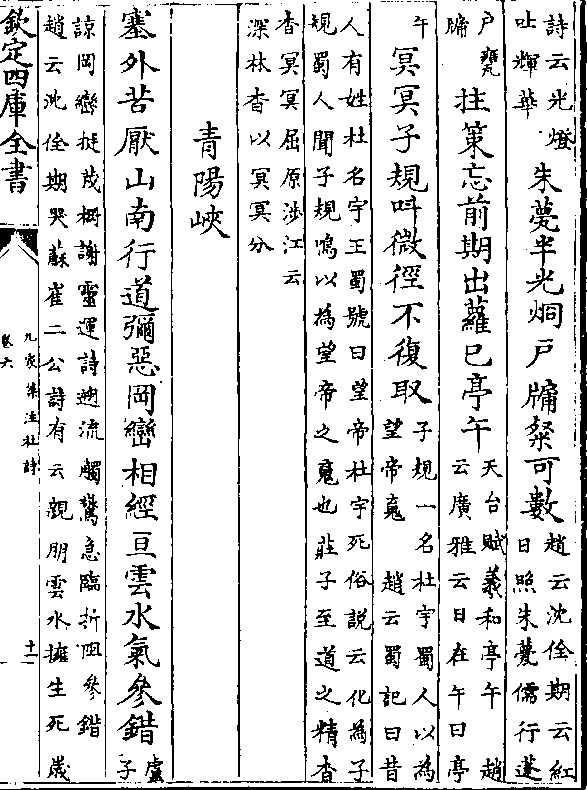 詩云光燈
吐輝華
朱甍半光炯戶牖粲可數
趙云沈佺期云紅
日照朱甍儒行蓬
戶甕
牖
拄策忘前期出蘿已亭午
天台賦羲和亭午 趙
云廣雅云日在午曰亭
午
冥冥子規叫微徑不復取
子規一名杜宇蜀人以為
望帝䰟 趙云蜀記曰昔
人有姓杜名宇王蜀號曰望帝杜宇死俗說云化為子
規蜀人聞子規鳴以為望帝之䰟也莊子至道之精杳
杳冥冥屈原涉江云
深林杳以冥冥兮
青陽峽
塞外苦厭山南行道彌惡岡巒相經亘雲水氣參錯
盧
子
諒岡巒挺茂樹謝靈運詩遡流觸驚急臨折阻參錯
趙云沈佺期哭蘇崔二公詩有云親朋雲水擁生死歲
欽定四庫全書
九家集注杜詩
卷六
十一